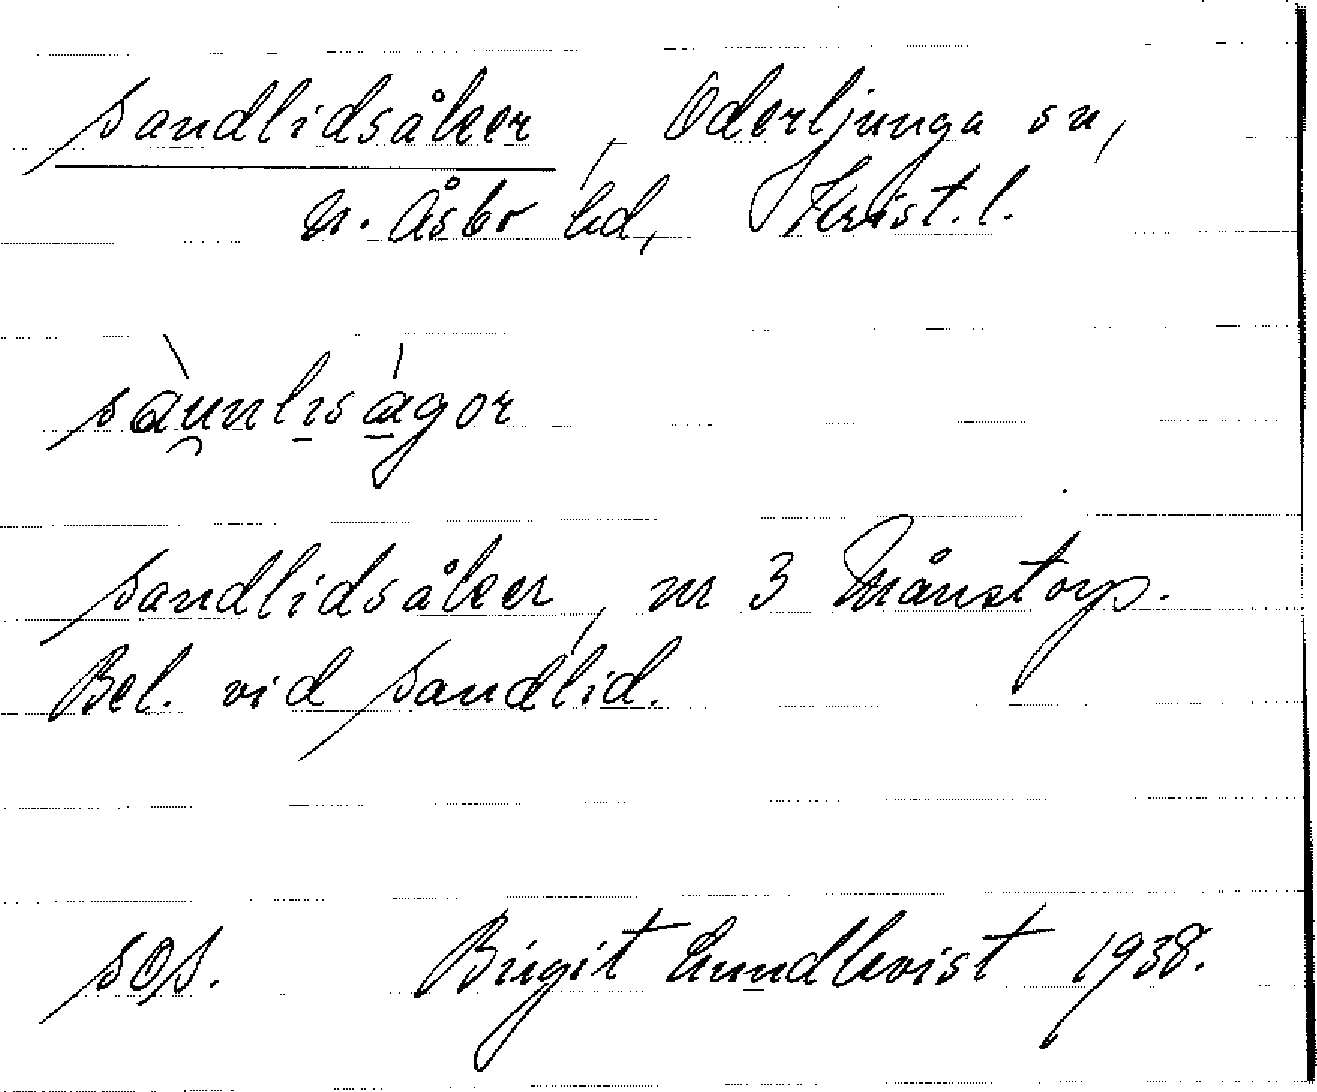 Sandlidsåker, Oderljunga sn,
N. Åsbo hd, Krist. l.
sànnlıságor
Sandlidsåker, nr 3 Månstorp.
Bel. vid Sandlid.
sOs. Birgit Lundkvist 1938.